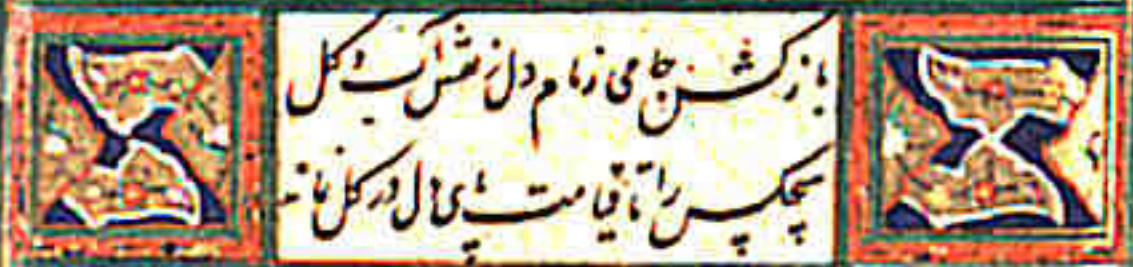 باز کش جامی زمام دل ز نقش آب و گل
هیچکس را تا قیامت پای دل در گل نماند